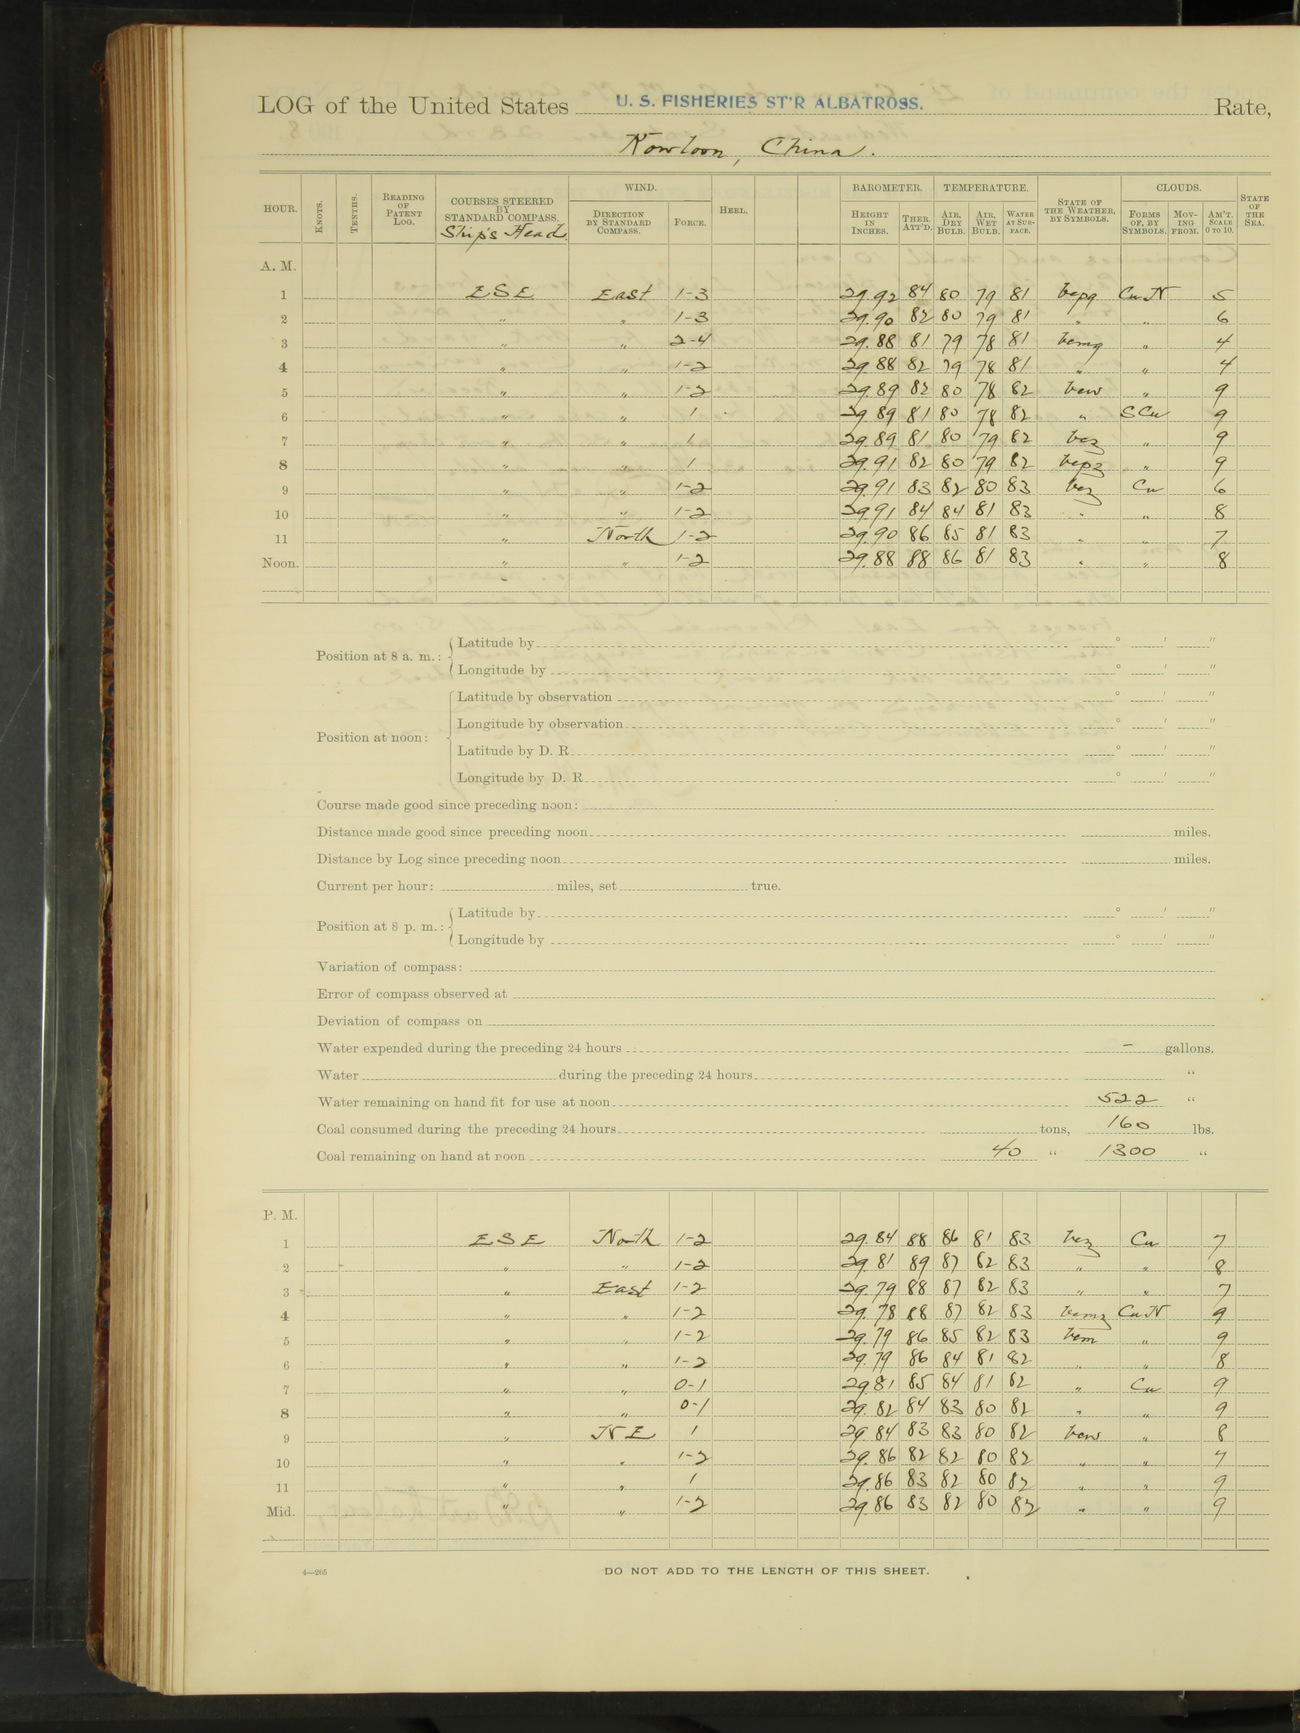 LOG of the United States U. S. FISHERIES ST'R ALBATROSS. Rate,
Kowloon, China.
HOUR. KNOTS. TENTHS. READING OF PATENT LOG. COURSES STEERED BY STANDARD COMPASS. Ship's Head WIND. DIRECTION BY STANDARD COMPASS. FORCE. HEEL. BAROMETER. HEIGHT IN INCHES. THER. ATT'D. TEMPERATURE. AIR, DRY BULB. AIR, WET BULB. WATER AT SURFACE. STATE OF THE WEATHER, BY SYMBOLS. CLOUDS. FORMS OF, BY SYMBOLS. MOVING FROM. AM'T. SCALE 0 TO 10. STATE OF THE SEA.
A. M.
1 ESE East 1-3 29.92 84 80 79 81 bcpq CuN 5
2 " " 1-3 29.90 82 80 79 81 " " 6
3 " " 2-4 29.88 81 79 78 81 bcmq " 4
4 " " 1-2 29.88 82 79 78 81 " " 4
5 " " 1-2 29.89 82 80 78 82 bcw " 9
6 " " 1 29.89 81 80 78 82 " SCu 9
7 " " 1 29.89 81 80 79 82 bcz " 9
8 " " 1 29.91 82 80 79 82 bcpz " 9
9 " " 1-2 29.91 83 82 80 83 bcz Cu 6
10 " " 1-2 29.91 84 84 81 83 " " 8
11 " North 1-2 29.90 86 85 81 83 " " 7
Noon. " " 1-2 29.88 88 86 81 83 " " 8
Position at 8 a. m.: Latitude by ° ′ ″
Longitude by ° ′ ″
Position at noon: Latitude by observation ° ′ ″
Longitude by observation ° ′ ″
Latitude by D. R. ° ′ ″
Longitude by D. R. ° ′ ″
Course made good since preceding noon:
Distance made good since preceding noon miles.
Distance by Log since preceding noon miles.
Current per hour: miles, set true.
Position at 8 p. m.: Latitude by ° ′ ″
Longitude by ° ′ ″
Variation of compass:
Error of compass observed at
Deviation of compass on
Water expended during the preceding 24 hours - gallons.
Water during the preceding 24 hours "
Water remaining on hand fit for use at noon 522 "
Coal consumed during the preceding 24 hours tons, 160 lbs.
Coal remaining on hand at noon 40 " 1300 "
P. M.
1 ESE North 1-2 29.84 88 86 81 83 bcz Cu 7
2 " " 1-2 29.81 89 87 82 83 " " 8
3 " East 1-2 29.79 88 87 82 83 " " 7
4 " " 1-2 29.78 88 87 82 83 bcmz CuN 9
5 " " 1-2 29.79 86 85 82 83 bcm " 9
6 " " 1-2 29.79 86 84 81 82 " " 8
7 " " 0-1 29.81 85 84 81 82 " Cu 9
8 " " 0-1 29.82 84 83 80 82 " " 9
9 " NE 1 29.84 83 83 80 82 bcw " 8
10 " " 1-2 29.86 82 82 80 82 " " 7
11 " " 1 29.86 83 82 80 82 " " 9
Mid. " " 1-2 29.86 83 82 80 82 " " 9
4—265
DO NOT ADD TO THE LENGTH OF THIS SHEET.